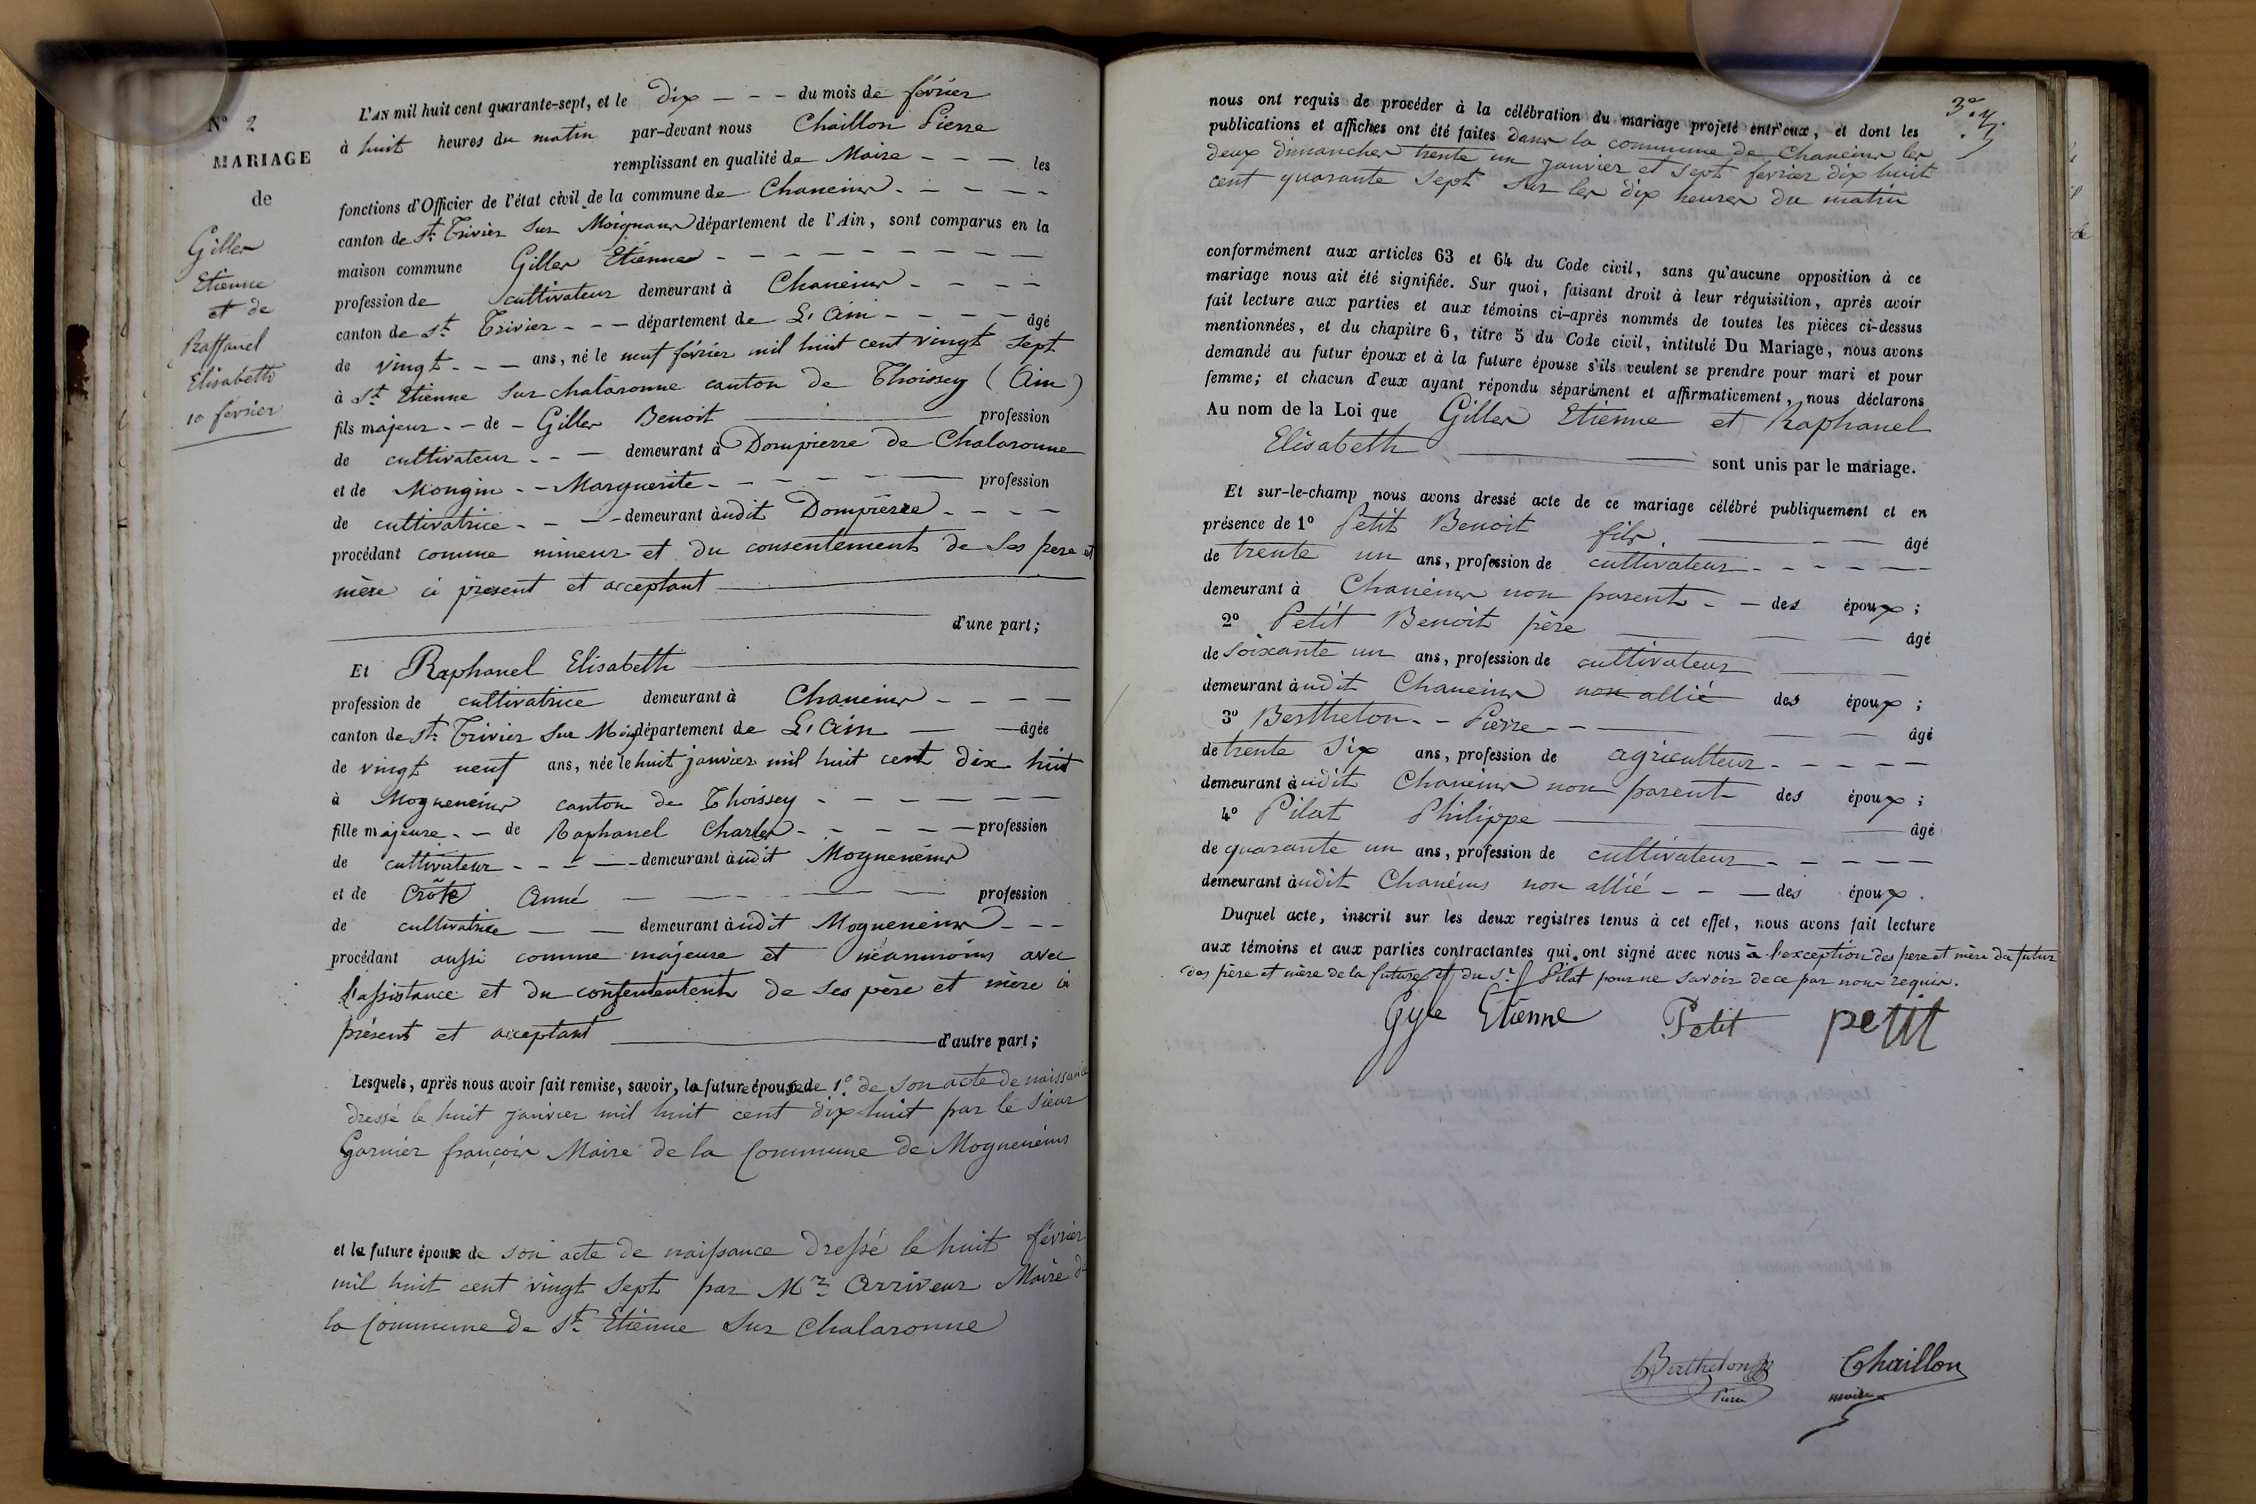 N° 2
MARIAGE
de
Giller
Etienne
et de
Raffanel
Elisabeth
10 février
L'AN mil huit cent quarante-sept, et le dix - - - du mois de février
à huit heures du matin par-devant nous Chaillon Pierre
remplissant en qualité de Maire - - - les
fonctions d'Officier de l'état civil de la commune de Chaneins - - - -
canton de St Trivier Sur Moignans département de l'Ain, sont comparus en la
maison commune Giller Etienne - - - - - - - -
profession de cultivateur demeurant à Chaneins - - - -
canton de St Trivier - - - département de L'Ain - - - - âgé
de vingt - - - ans, né le neuf février mil huit cent vingt sept
à St Etienne Sur chalaronne canton de Thoissey (Ain)
fils majeur - - de - Giller Benoit profession
de cultivateur - - - demeurant à Dompierre de Chalaronne
et de Mongin - - Marguerite - - - - - - profession
de cultivatrice - - - demeurant àudit Dompierre - - - -
procédant comme mineur et du consentement de ses pere et
mère ci présent et acceptant
d'une part;
Et Raphanel Elisabeth
profession de cultivatrice demeurant à Chaneins - - - -
canton de St Trivier Sur Moig département de L'Ain - - âgée
de vingt neuf ans, née le huit janvier mil huit cent dix huit
à Mogneneins canton de Thoissey - - - - - -
fille majeure - - de Raphanel Charles - - - - - profession
de cultivateur - - - - - demeurant àudit Mogneneins
et de Crôte Anné - - - - - profession
de cultivatrice - - demeurant àudit Mogneneins - - -
procédant aussi comme majeure et néanmoins avec
l'assistance et du consentement de ses père et mère ci
présent et acceptant d'autre part;
Lesquels, après nous avoir fait remise, savoir, la future épouse de 1° de son acte de naissance
dressé le huit janvier mil huit cent dix huit par le sieur
Garnier françois Maire de la Commune de Mogneneins
et le future époux de son acte de naissance dressé le huit février
mil huit cent vingt sept par Mr Arriveur Maire de
la Commune de St Etienne Sur Chalaronne
nous ont requis de procéder à la célébration du mariage projeté entr'eux, et dont les
publications et affiches ont été faites dans la commune de Chaneins les
deux dimanches trente un janvier et sept février dix huit
cent quarante sept sur les dix heures du matin
conformément aux articles 63 et 64 du Code civil, sans qu'aucune opposition à ce
mariage nous ait été signifiée. Sur quoi, faisant droit à leur réquisition, après avoir
fait lecture aux parties et aux témoins ci-après nommés de toutes les pièces ci-dessus
mentionnées, et du chapitre 6, titre 5 du Code civil, intitulé Du Mariage, nous avons
demandé au futur époux et à la future épouse s'ils veulent se prendre pour mari et pour
femme; et chacun d'eux ayant répondu séparément et affirmativement, nous déclarons
Au nom de la Loi que Giller Etienne et Raphanel
Elisabeth sont unis par le mariage.
Et sur-le-champ nous avons dressé acte de ce mariage célébré publiquement et en
présence de 1° Petit Benoit fils. - - âgé
de trente un ans, profession de cultivateur - - - - -
demeurant à Chaneins non parent - - des époux;
2° Petit Benoit père âgé
de soixante un ans, profession de cultivateur
demeurant àudit Chaneins non allié des époux;
3° Berthelon - - Pierre - - âgé
de trente six ans, profession de agriculteur - - - - -
demeurant àudit Chaneins non parent des époux;
4° Pilat Philippe âgé
de quarante un ans, profession de cultivateur - - - - -
demeurant àudit Chanéins non allié - - - des époux.
Duquel acte, inscrit sur les deux registres tenus à cet effet, nous avons fait lecture
aux témoins et aux parties contractantes qui ont signé avec nous à l'exception des pere et mère du futur
des père et mère de la future et du Sr Pilat pour ne savoir de ce par nous requis.
Gyle Etienne Petit petit
Berthelon Chaillon
Pierre maire